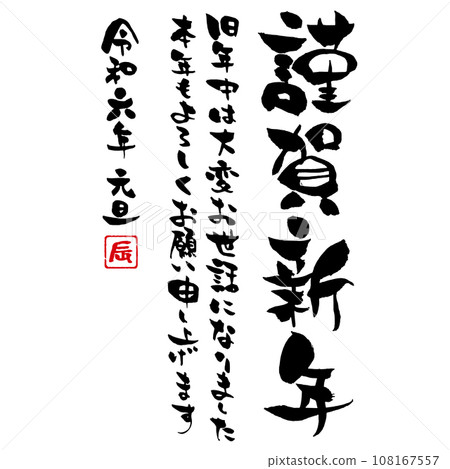 謹賀新年
旧年中は大変お世話になりました
本年もよろしくお願い申し上げます
令和六年 元旦
辰
108167557